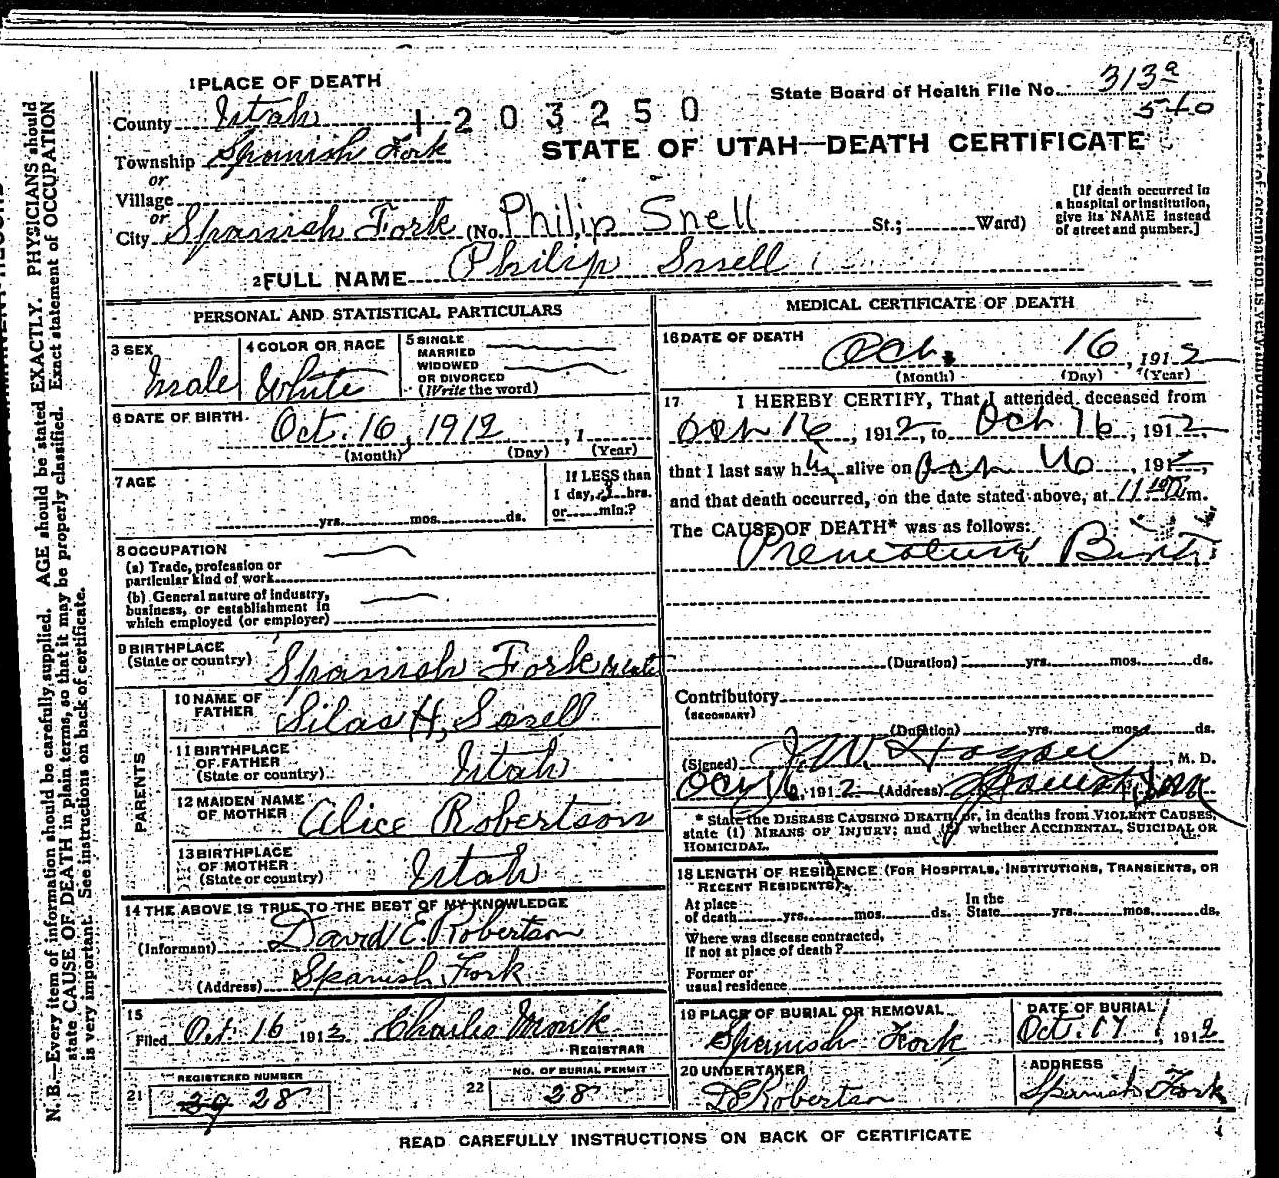 1 PLACE OF DEATH
County Utah
1203250
State Board of Health File No. 313a
540
Township Spanish Fork
or
STATE OF UTAH—DEATH CERTIFICATE
Village
or
City Spanish Fork (No. Philip Snell St.; Ward)
[If death occurred in a hospital or institution, give its NAME instead of street and number.]
2 FULL NAME Philip Snell
PERSONAL AND STATISTICAL PARTICULARS
3 SEX
Male
4 COLOR OR RACE
White
5 SINGLE
MARRIED
WIDOWED
OR DIVORCED
(Write the word)
6 DATE OF BIRTH
Oct. 16, 1912, 1
(Month) (Day) (Year)
7 AGE
yrs. mos. ds.
If LESS than
1 day, hrs.
or min.?
8 OCCUPATION
(a) Trade, profession or
particular kind of work
(b) General nature of industry,
business, or establishment in
which employed (or employer)
9 BIRTHPLACE
(State or country) Spanish Fork
PARENTS
10 NAME OF
FATHER Silas H. Snell
11 BIRTHPLACE
OF FATHER
(State or country) Utah
12 MAIDEN NAME
OF MOTHER Alice Robertson
13 BIRTHPLACE
OF MOTHER
(State or country) Utah
14 THE ABOVE IS TRUE TO THE BEST OF MY KNOWLEDGE
(Informant) David E. Robertson
(Address) Spanish Fork
15
Filed Oct. 16 1912 Charles Monk
REGISTRAR
21 REGISTERED NUMBER
28
22 NO. OF BURIAL PERMIT
28
MEDICAL CERTIFICATE OF DEATH
16 DATE OF DEATH
Oct. 16, 1912
(Month) (Day) (Year)
17 I HEREBY CERTIFY, That I attended deceased from
Oct 16, 1912, to Oct 16, 1912,
that I last saw h alive on Oct 16, 191,
and that death occurred, on the date stated above, at 11 m.
The CAUSE OF DEATH* was as follows:
Premature Birth
(Duration) yrs. mos. ds.
Contributory
(SECONDARY)
(Duration) yrs. mos. ds.
(Signed) J. W. , M. D.
Oct 16, 1912 (Address) Spanish Fork
* State the DISEASE CAUSING DEATH, or, in deaths from VIOLENT CAUSES,
state (1) MEANS OF INJURY; and (2) whether ACCIDENTAL, SUICIDAL OR
HOMICIDAL.
18 LENGTH OF RESIDENCE (FOR HOSPITALS, INSTITUTIONS, TRANSIENTS, OR
RECENT RESIDENTS).
At place
of death yrs. mos. ds.
In the
State yrs. mos. ds.
Where was disease contracted,
if not at place of death?
Former or
usual residence
19 PLACE OF BURIAL OR REMOVAL
Spanish Fork
DATE OF BURIAL
Oct. 17, 1912
20 UNDERTAKER
D E Robertson
ADDRESS
Spanish Fork
READ CAREFULLY INSTRUCTIONS ON BACK OF CERTIFICATE
N. B.—Every item of information should be carefully supplied. AGE should be stated EXACTLY. PHYSICIANS should
state CAUSE OF DEATH in plain terms, so that it may be properly classified. Exact statement of OCCUPATION
is very important. See instructions on back of certificate.